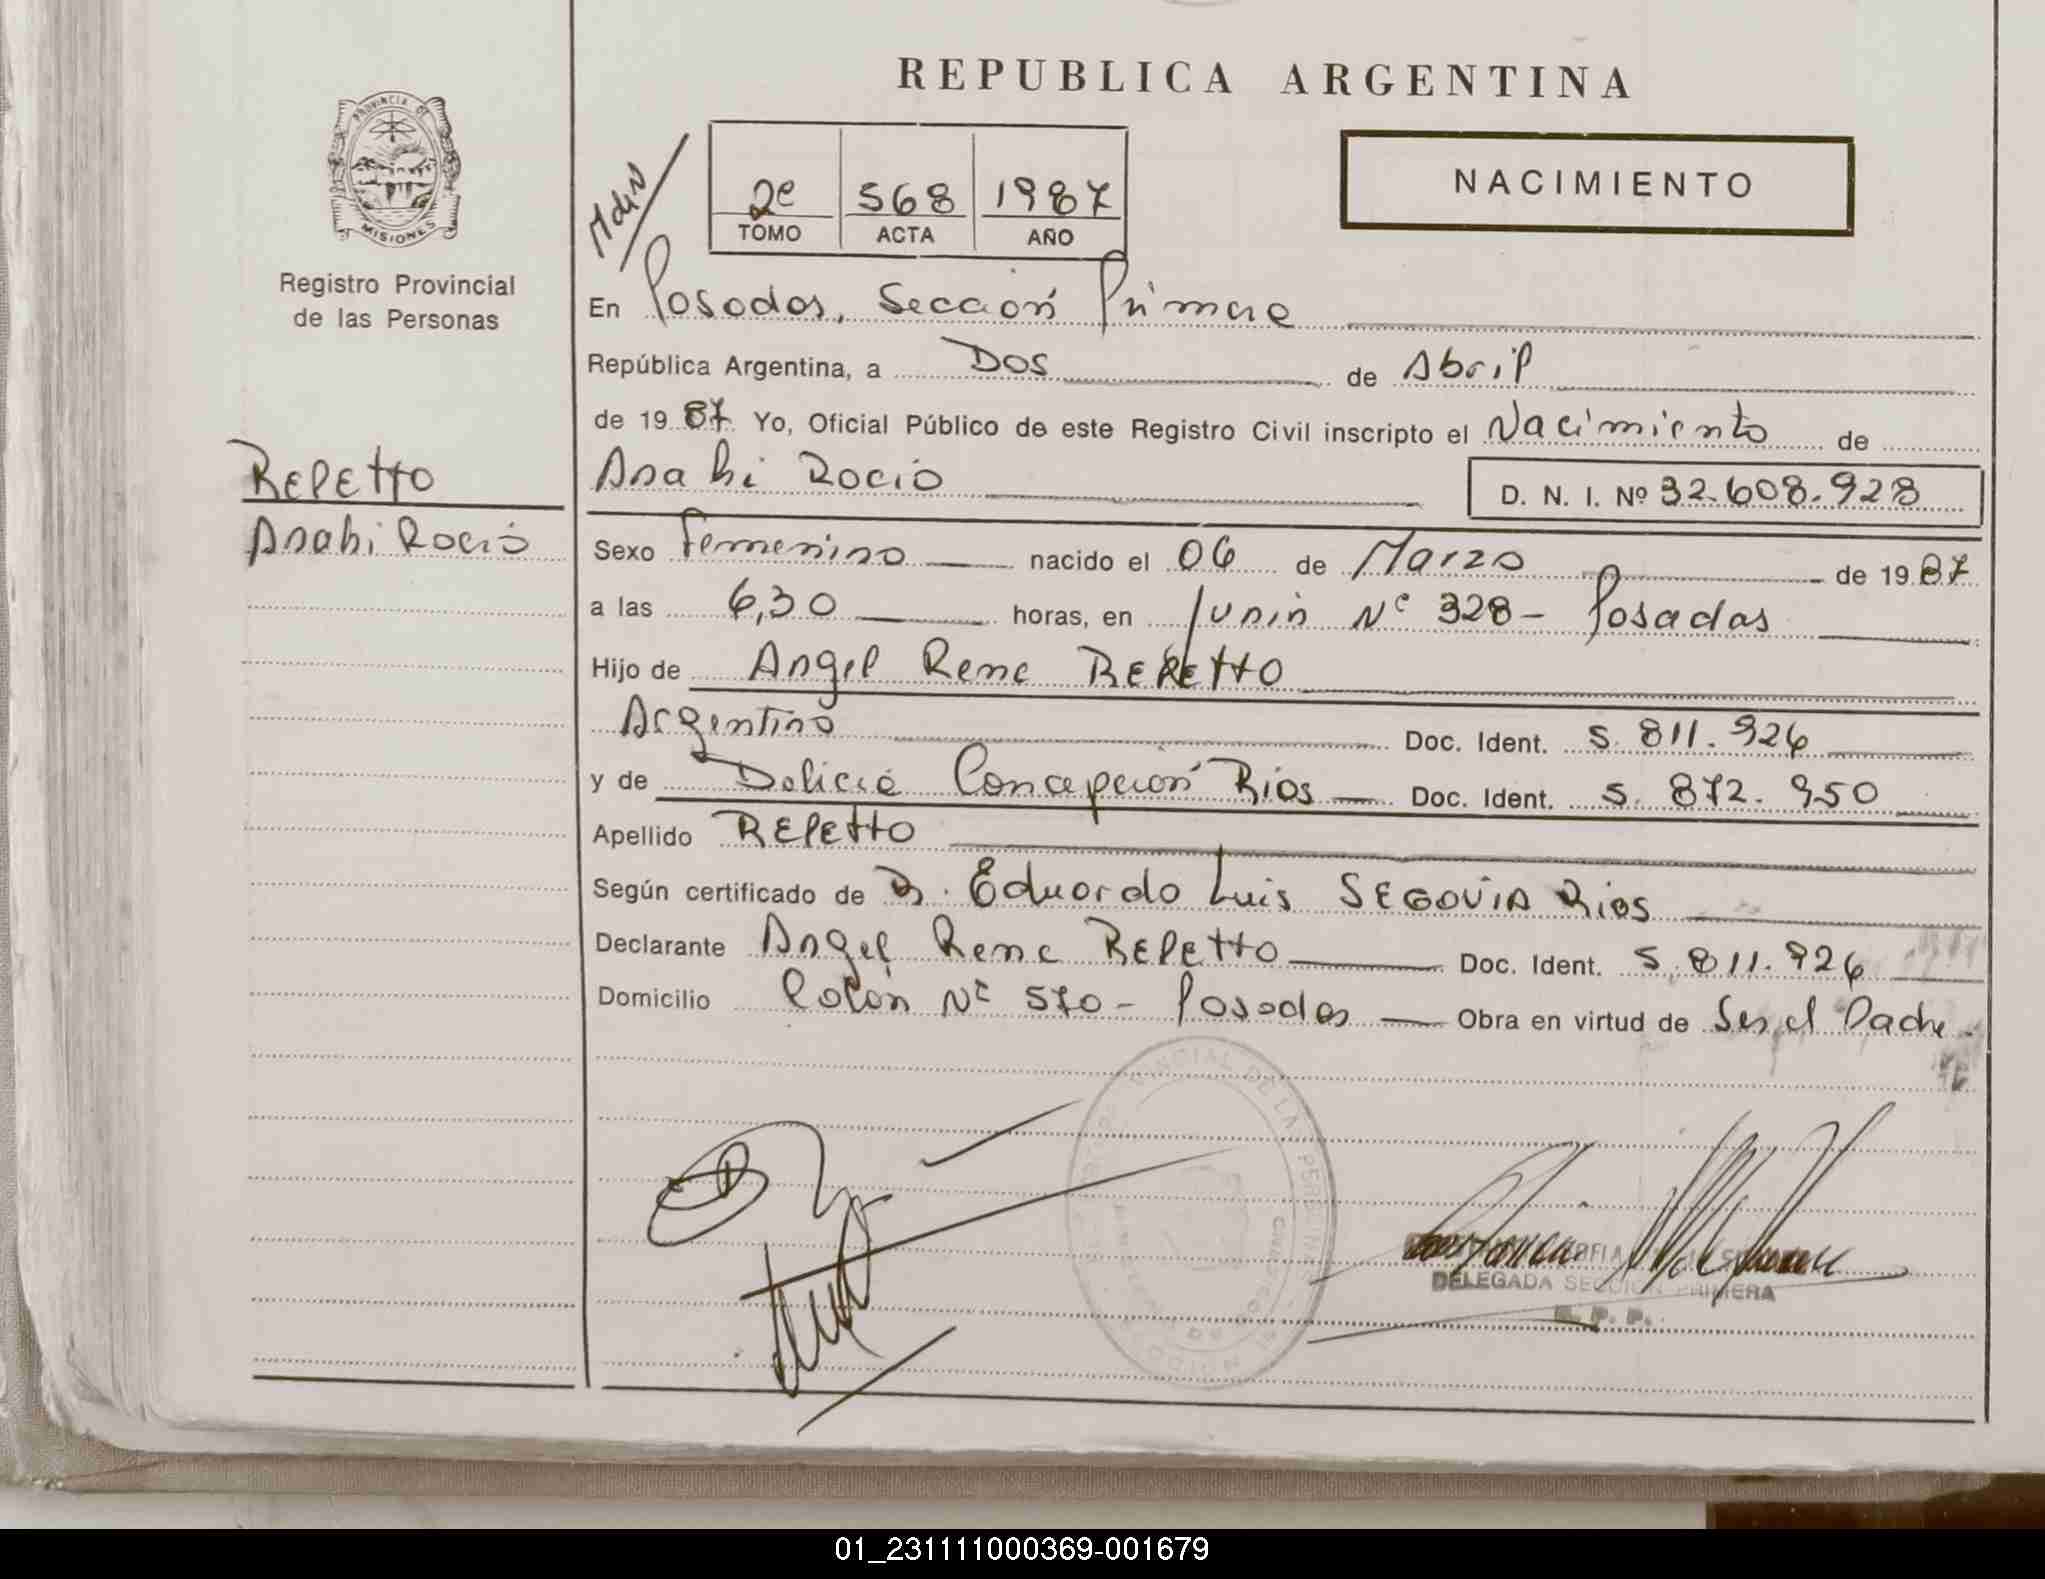 REPUBLICA ARGENTINA
PROVINCIA DE
MISIONES
Registro Provincial
de las Personas
2º 568 1987
TOMO ACTA AÑO
NACIMIENTO
En Posadas, Sección Primera
República Argentina, a Dos de Abril
de 1987 Yo, Oficial Público de este Registro Civil inscripto el Nacimiento de
REPETTO
Anahi Rocio
Anahi Rocio D. N. I. Nº 32.608.928
Sexo Femenino nacido el 06 de Marzo de 1987
a las 6,30 horas, en Junin Nº 328 - Posadas
Hijo de Angel Rene REPETTO
Argentino Doc. Ident. 5.811.926
y de Delicia Concepción Rios Doc. Ident. 5.872.950
Apellido REPETTO
Según certificado de Dr. Eduardo Luis SEGOVIA Rios
Declarante Angel Rene REPETTO Doc. Ident. 5.811.926
Domicilio Colón Nº 570 - Posadas Obra en virtud de Ser el Padre.
DELEGADA SECCION PRIMERA
R. P. P.
01_231111000369-001679